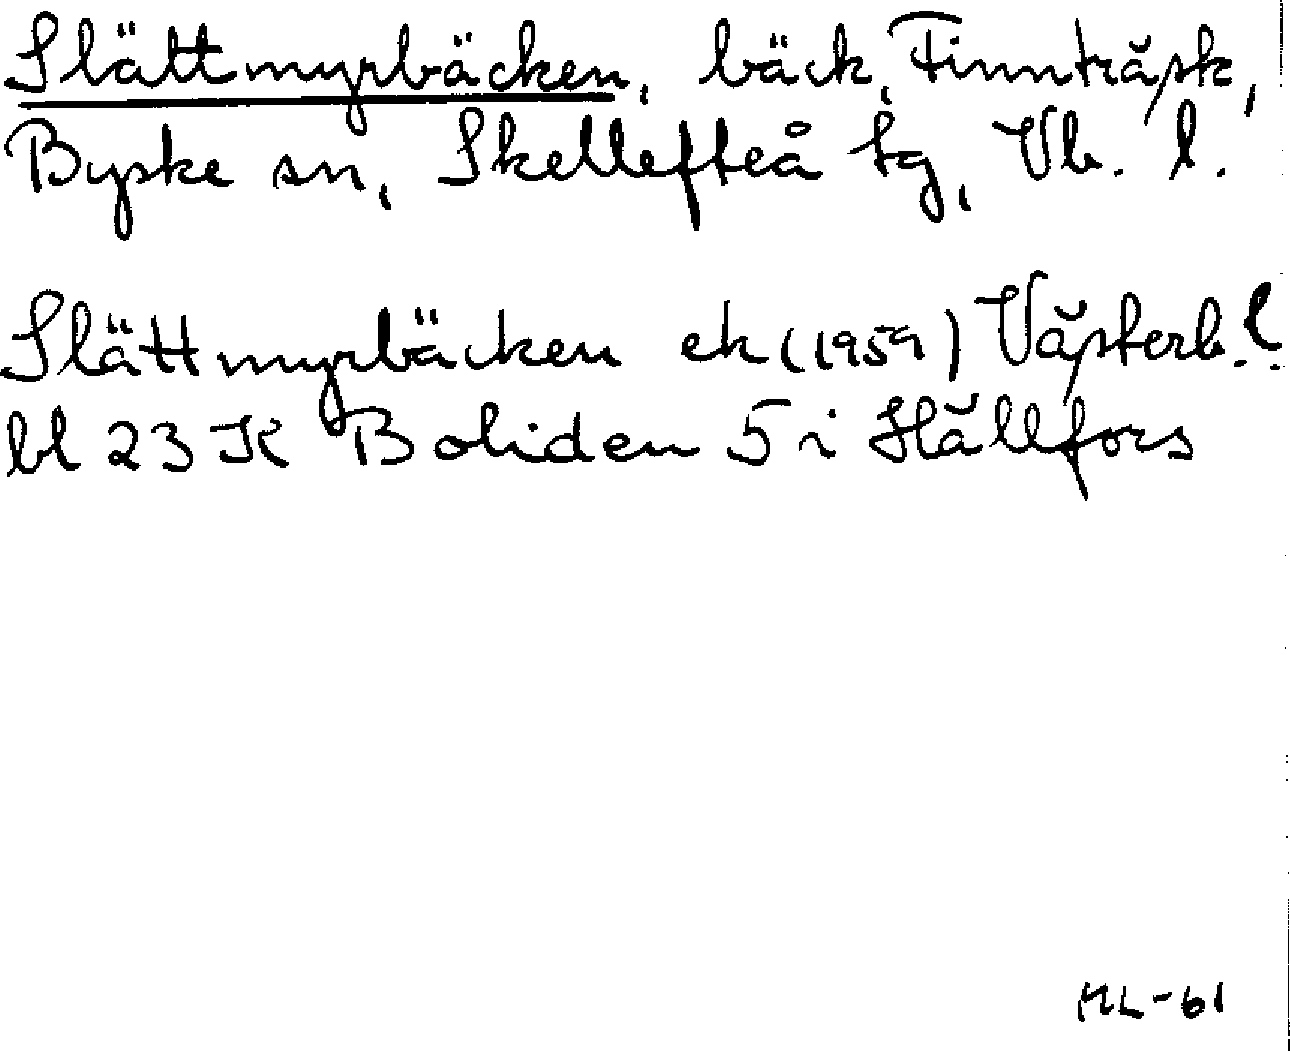 Slättmyrbäcken, bäck, Finnträsk,
Byske sn, Skellefteå tg, Vb. l.
Slättmyrbäcken ek (1959) Västerb. l.
bl 23 K Boliden 5 i Hällfors
HL-61